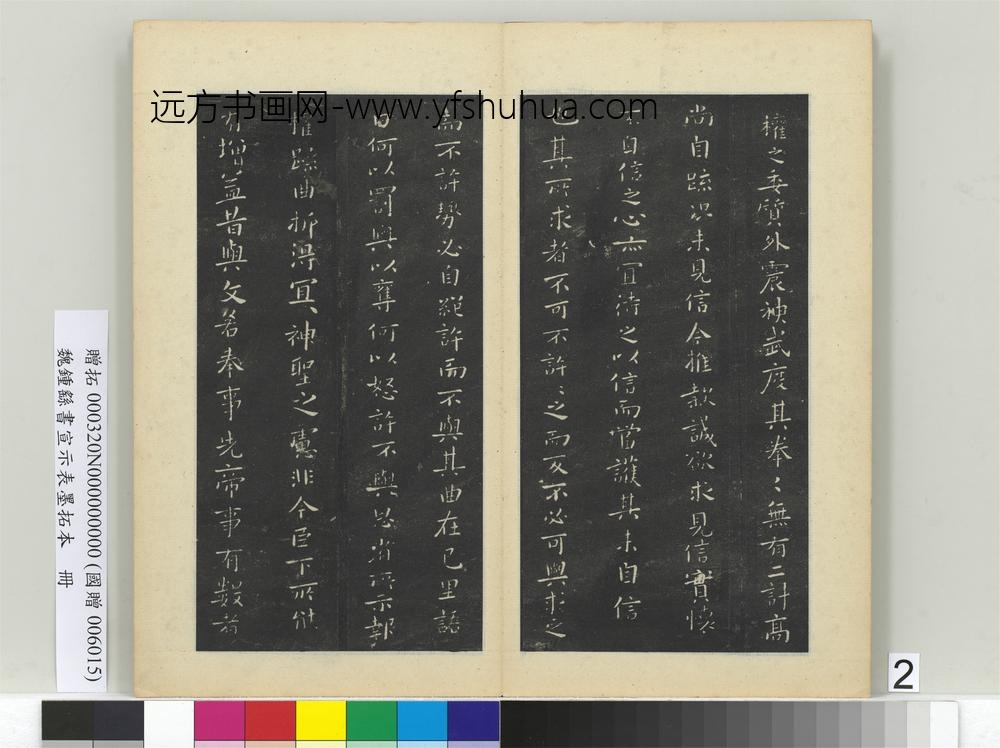 远方书画网-www.yfshuhua.com
權之委質外震神武度其拳〻無有二計高
尚自疏況未見信今推款誠欲求見信實懷
不自信之心亦宜待之以信而當護其未自信
也其所求者不可不許〻之而反不必可與求之
而不許勢必自絕許而不與其曲在己里語
曰何以罰與以奪何以怒許不與思省所示報
權疏曲折得宜〻神聖之慮非今臣下所能
有增益昔與文若奉事先帝事有數者
贈拓 000320N000000000 (國贈 006015)
魏鍾繇書宣示表墨拓本 冊
2